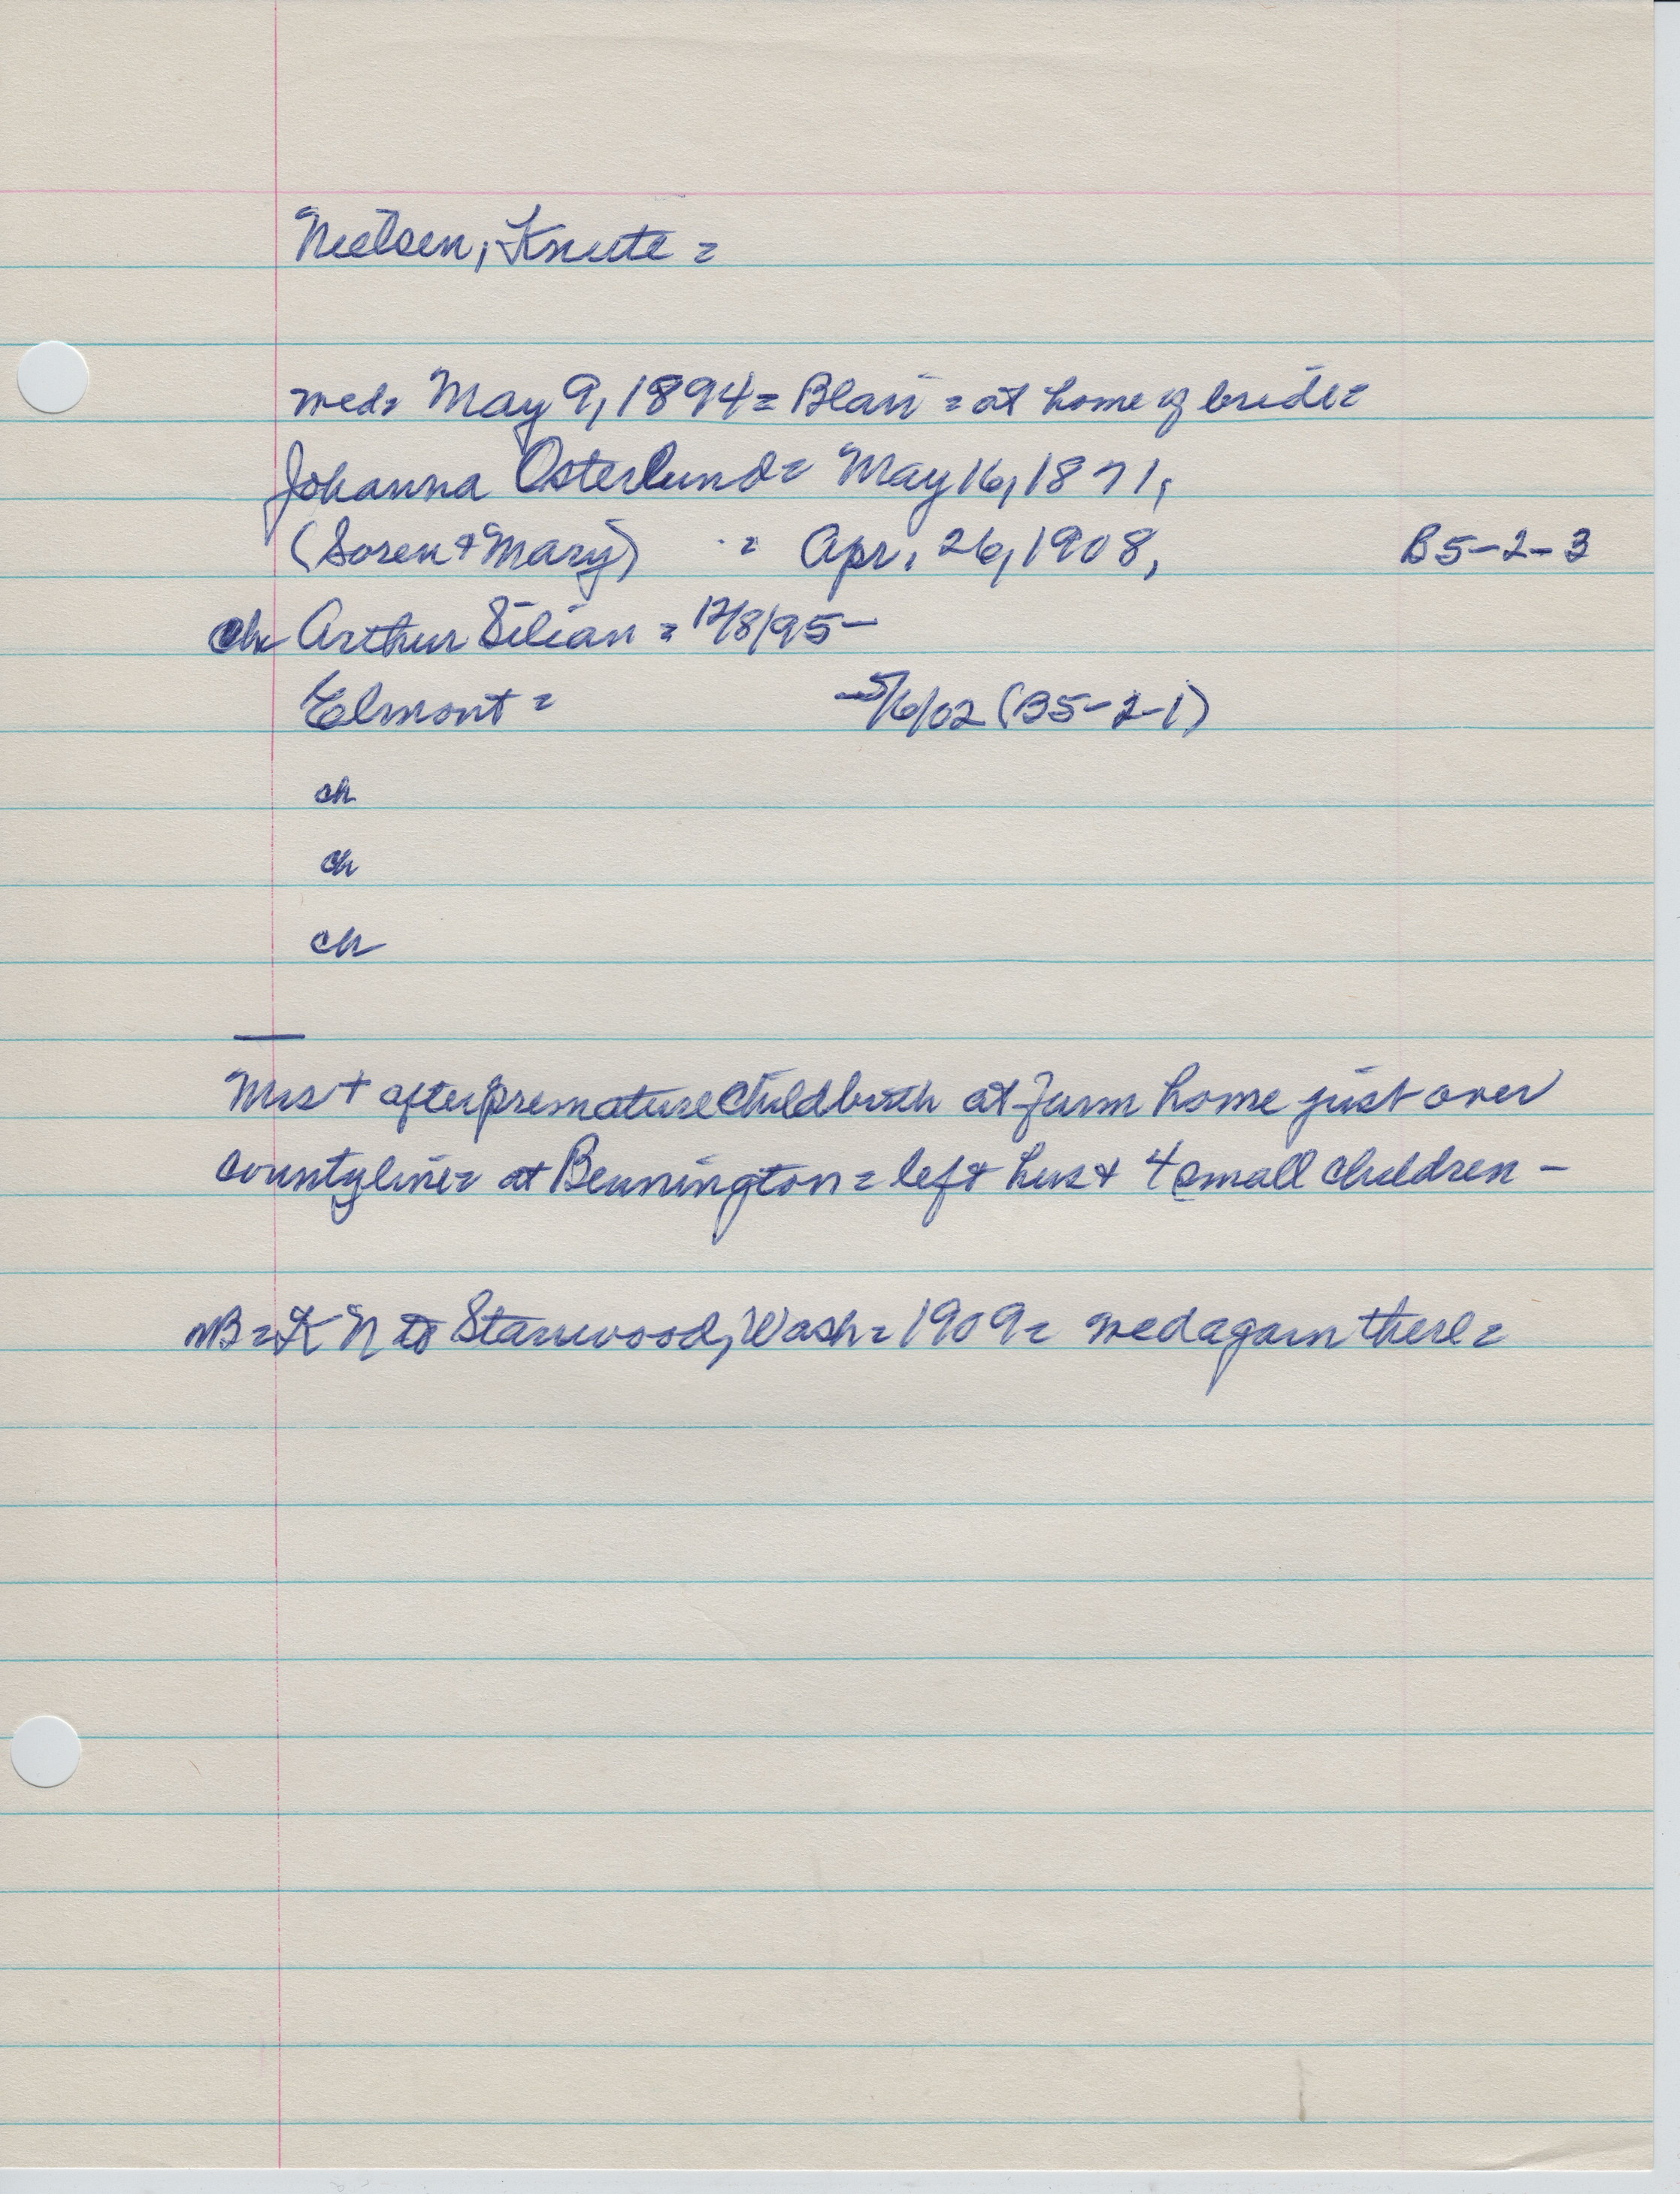 Nielsen, Knute =
wed = May 9, 1894 = Blair = at home of bride =
Johanna Osterlund = May 16, 1871,
(Soren + Mary) = Apr. 26, 1908, B5-2-3
ch Arthur Silian = 12/8/95 -
Elmont = - 5/6/02 (B5-2-1)
ch
ch
ch
Mrs + after premature childbirth at farm home just over
county line = at Bennington = left hus + 4 small children -
NB = K N to Stanwood, Wash = 1909 = wed again there =